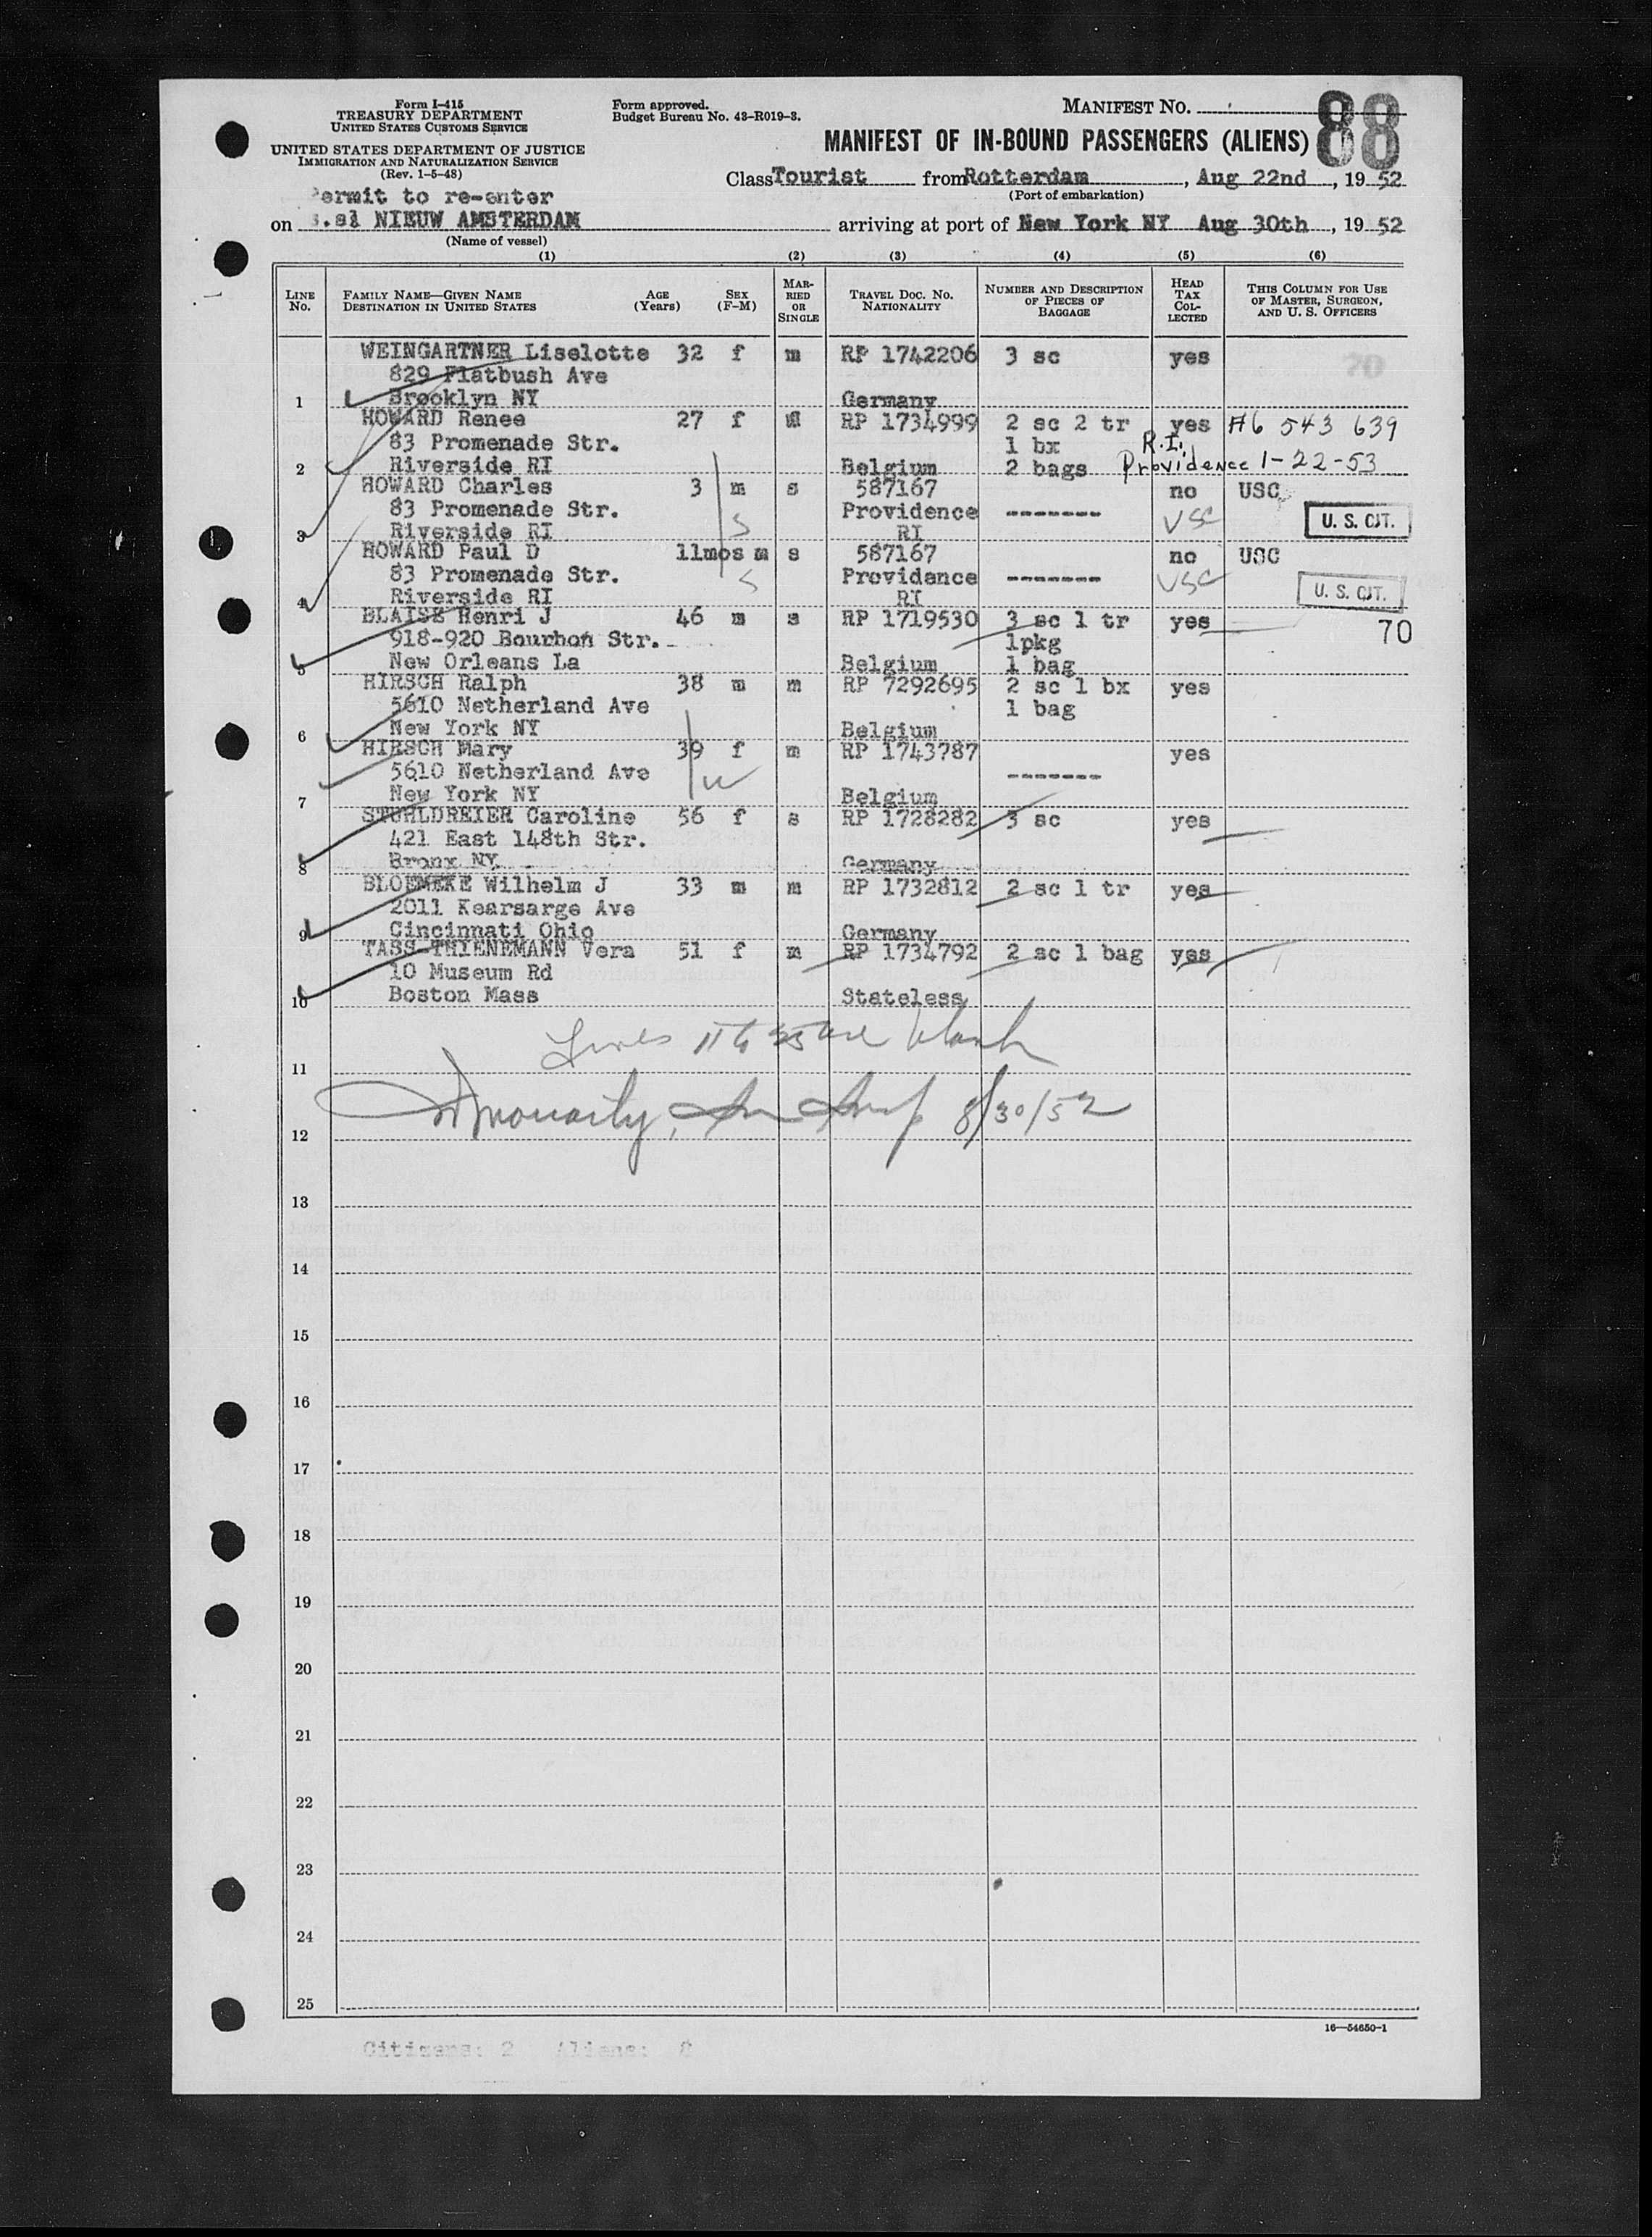 Form I-415
TREASURY DEPARTMENT
UNITED STATES CUSTOMS SERVICE
UNITED STATES DEPARTMENT OF JUSTICE
IMMIGRATION AND NATURALIZATION SERVICE
(Rev. 1-5-48)
Form approved.
Budget Bureau No. 43-R019-3.
MANIFEST NO. 88
MANIFEST OF IN-BOUND PASSENGERS (ALIENS)
Class Tourist from Rotterdam, Aug 22nd, 1952
(Port of embarkation)
Permit to re-enter
on s.s. NIEUW AMSTERDAM arriving at port of New York NY Aug 30th, 1952
(Name of vessel)
(1) (2) (3) (4) (5) (6)
LINE NO. FAMILY NAME—GIVEN NAME DESTINATION IN UNITED STATES AGE (Years) SEX (F-M) MARRIED OR SINGLE TRAVEL DOC. NO. NATIONALITY NUMBER AND DESCRIPTION OF PIECES OF BAGGAGE HEAD TAX COLLECTED THIS COLUMN FOR USE OF MASTER, SURGEON, AND U. S. OFFICERS
WEINGARTNER Liselotte 32 f m RP 1742206 3 sc yes 70
829 Flatbush Ave
1 Brooklyn NY Germany
HOWARD Renee 27 f m RP 1734999 2 sc 2 tr yes A6 543 639
83 Promenade Str. 1 bx R.I.
2 Riverside RI Belgium 2 bags Providence 1-22-53
HOWARD Charles 3 m s 587167 no USC
83 Promenade Str. S Providence ------- USC U. S. CIT.
3 Riverside RI RI
HOWARD Paul D 11mos m s 587167 no USC
83 Promenade Str. S Providance ------- USC U. S. CIT.
4 Riverside RI RI
BLAISE Henri J 46 m s RP 1719530 3 sc 1 tr yes 70
918-920 Bourbon Str. 1pkg
5 New Orleans La Belgium 1 bag
HIRSCH Ralph 38 m m RP 7292695 2 sc 1 bx yes
5610 Netherland Ave 1 bag
6 New York NY Belgium
HIRSCH Mary 39 f m RP 1743787 yes
5610 Netherland Ave W -------
7 New York NY Belgium
STUHLDREIER Caroline 56 f s RP 1728282 3 sc yes
421 East 148th Str.
8 Bronx NY Germany
BLOEMEKE Wilhelm J 33 m m RP 1732812 2 sc 1 tr yes
2011 Kearsarge Ave
9 Cincinnati Ohio Germany
TASS-THIENEMANN Vera 51 f m RP 1734792 2 sc 1 bag yes
10 Museum Rd
10 Boston Mass Stateless
Lines 11 to 25 are blank
11
8/30/52
12
13
14
15
16
17
18
19
20
21
22
23
24
25
16—54650-1
Citizens: 2 Aliens: 8